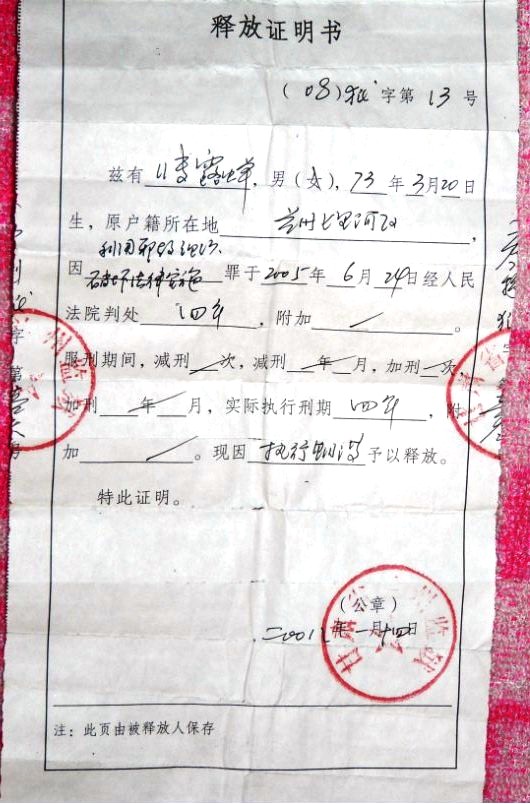 释放证明书
(08)字第13号
兹有 露, 男(女), 73年3月20日
生, 原户籍所在地 兰州七里河区,
利用邪教组织
因 破坏法律实施 罪于2005年6月24日经人民
法院判处 四年, 附加 / 。
服刑期间, 减刑 / 次, 减刑 / 年 月, 加刑 / 次,
加刑 / 年 月, 实际执行刑期 四年, 附
加 / 。现因 执行期满 予以释放。
特此证明。
(公章)
年一月十四日
注: 此页由被释放人保存